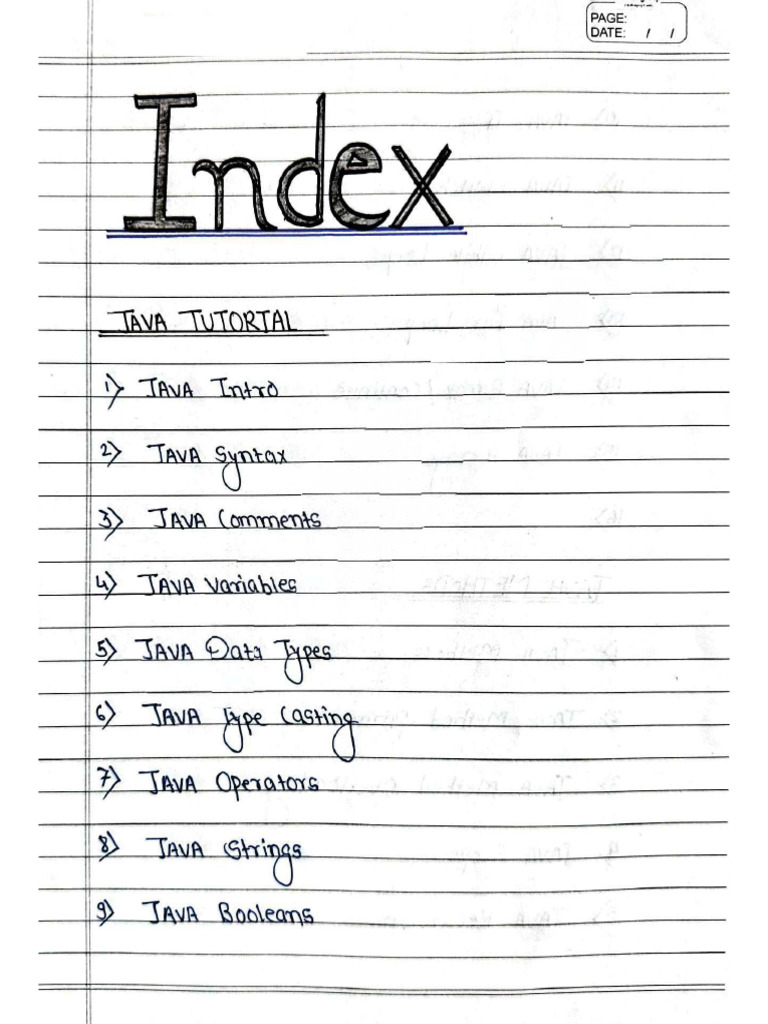 PAGE:
DATE: / /
Index
JAVA TUTORIAL
1) JAVA Intro
2) JAVA Syntax
3) JAVA Comments
4) JAVA Variables
5) JAVA Data Types
6) JAVA Type Casting
7) JAVA Operators
8) JAVA Strings
9) JAVA Booleans